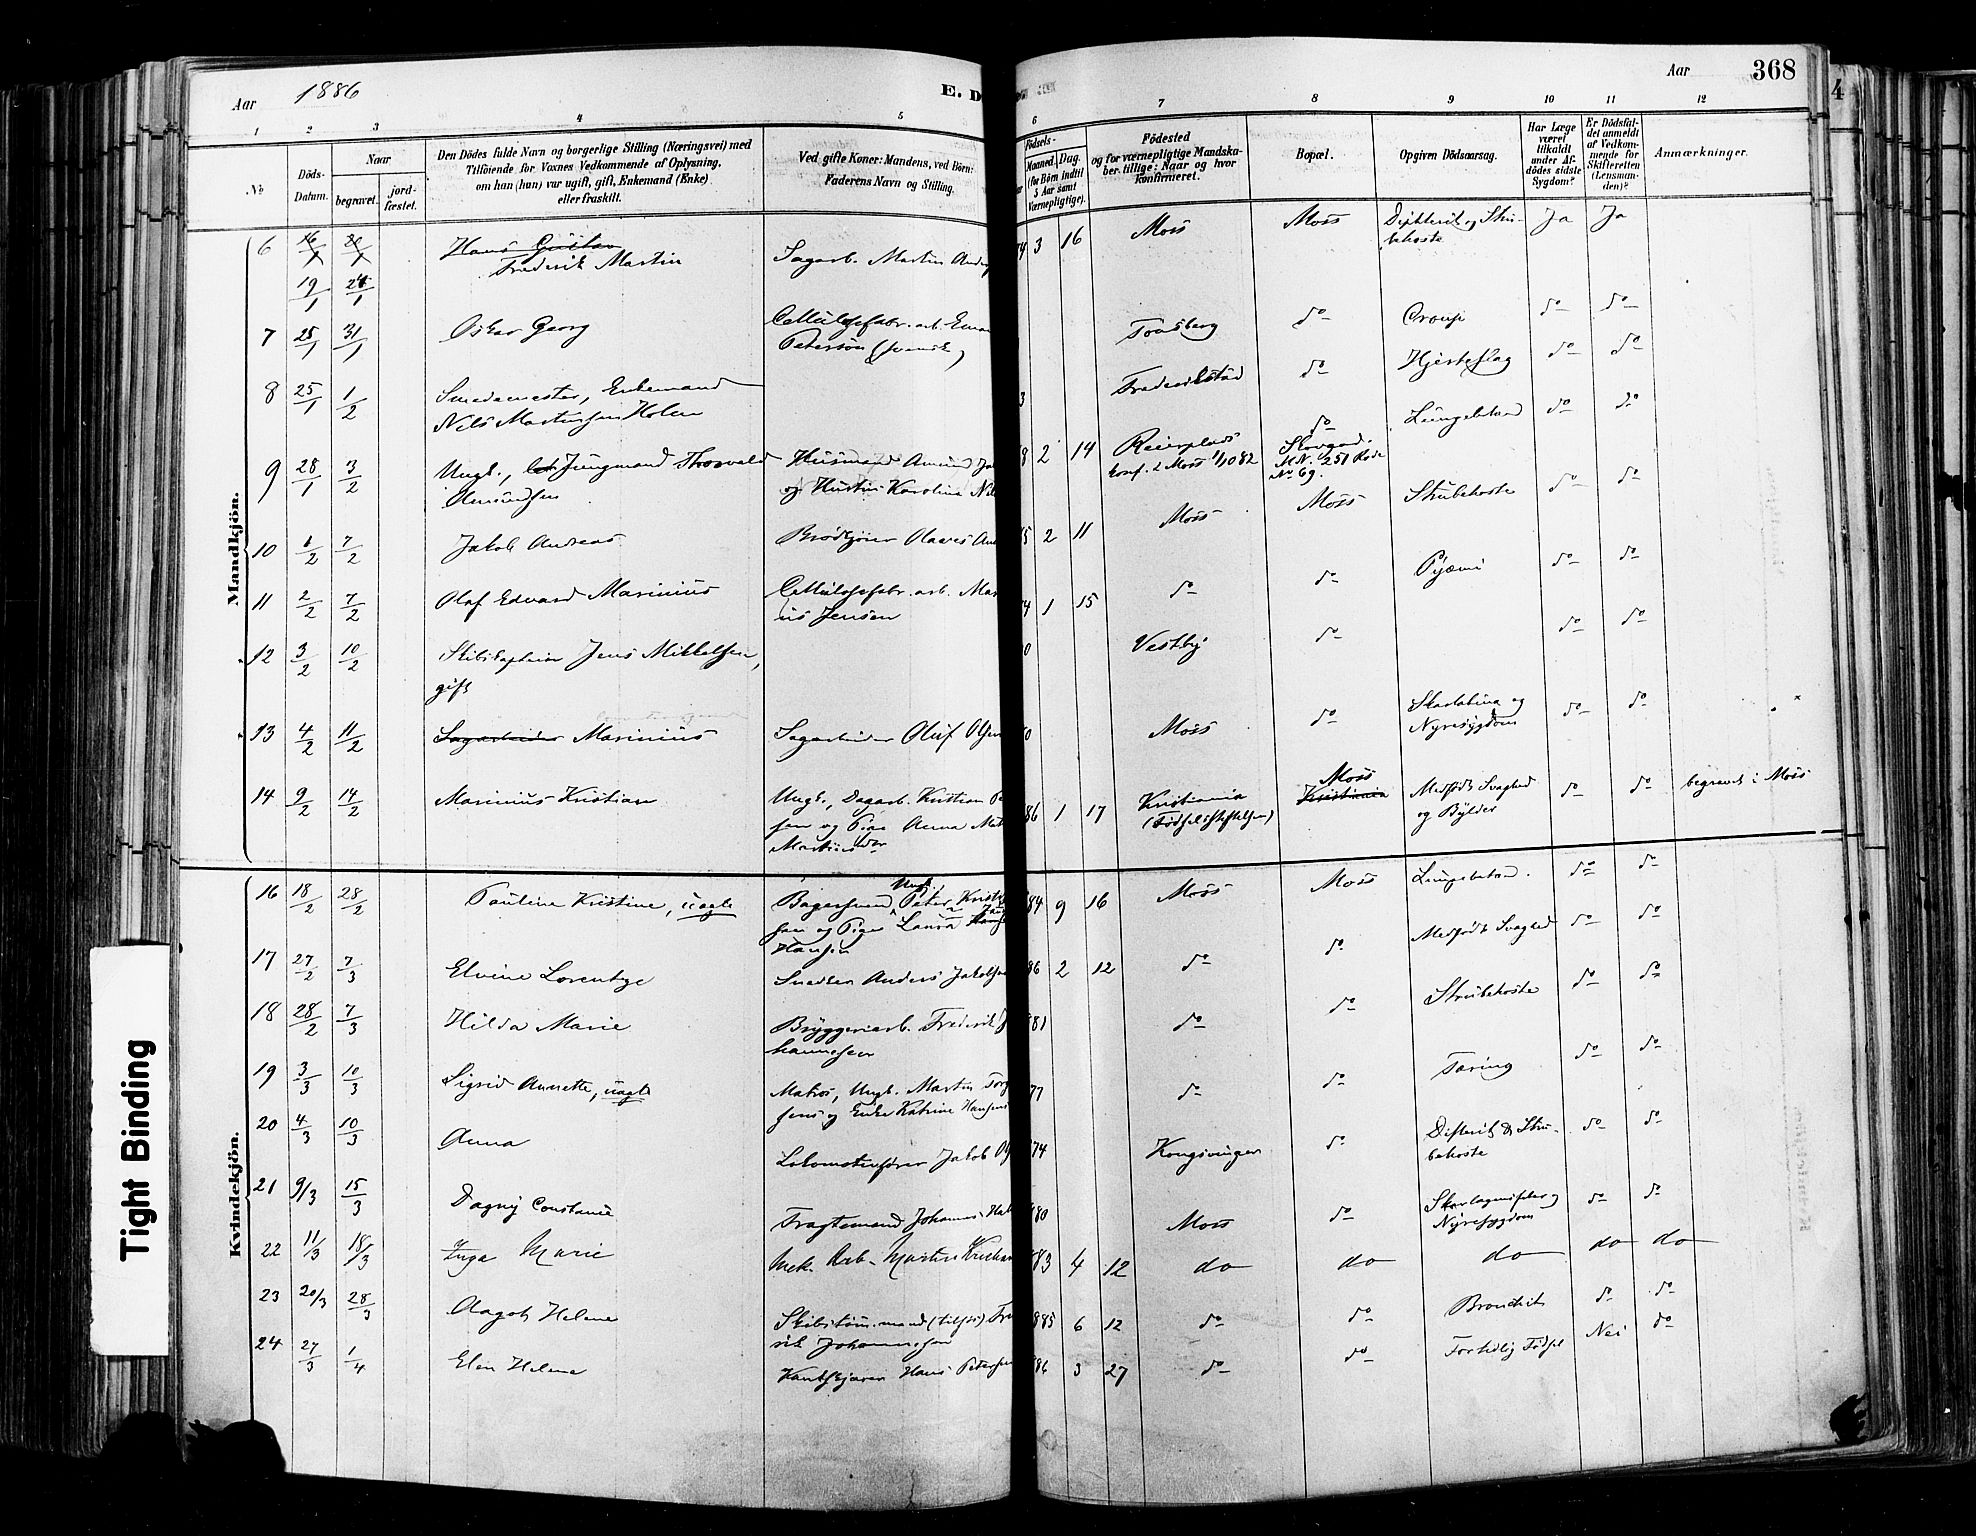 Aar 1886
E. D
Aar
368
4
1 2 3 4 5 6 7 8 9 10 11 12
No
Döds-Datum.
Naar
begravet.
jord-fæstet.
Den Dödes fulde Navn og borgerlige Stilling (Næringsvei) med
Tilföiende for Voxnes Vedkommende af Oplysning,
om han (hun) var ugift, gift, Enkemand (Enke)
eller fraskilt.
Ved gifte Koner: Mandens, ved Börn:
Faderens Navn og Stilling.
Födsels-
Maaned. Dag.
(for Börn indtil
5 Aar samt
Værnepligtige).
Födested
og for værnepligtige Mandska-
ber tillige: Naar og hvor
konfirmeret.
Bopæl.
Opgiven Dödsaarsag.
Har Læge
været
tilkaldt
under Af-
dödes sidste
Sygdom?
Er Dödsfal-
det anmeldt
af Vedkom-
mende for
Skifteretten
(Lensman-
den)?
Anmærkninger.
Mandkjön.
6 16/1 20/1 Hans Gustav Moss Moss Difterit og Stru- Ja Ja
Frederik Martin Sagarb. Martin Ander 74 3 16 behoste
19/1 24/1
7 25/1 31/1 Oskar Georg Cellulosefabr. arb. Eman Tonsberg do Croup do do
Peterson (svensk)
8 25/1 1/2 Smedemester, Enkemand Frederikstad do Hjerteslag do do
Nils Martinsen Holm 3
9 28/1 3/2 Ungk., Jungmand Thorvald Husmand Amund Ja 8 2 14 Reierplads do Lungebetænd do do
Amundsen og Hustru Karoline Nil konf. i Moss 1/10 82 Skovgad. M.N. 251 Rode No 69.
10 1/2 7/2 Jakob Andreas Brödkjörer Olaves An 85 2 11 Moss Moss Strubehoste do do
11 2/2 7/2 Olaf Edvard Marinius Cellulosefabr. arb. Mar 74 1 15 do do Pyæmi do do
ius Jensen
12 3/2 10/2 Skibskaptein Jens Mikkelsen, 0 Vestby do do do
gift
13 4/2 11/2 Sagarbeider Marinius Sagarbeider Oluf Olsen 0 Moss do Skarlatina og do do
Nyresygdom
14 9/2 14/2 Marinius Kristian Ungk., Dagarb. Kristian Pe 86 1 17 Kristiania Moss Medfødt Svaghed do do begravet i Moss
sen og Pige Anna Mat (Födselsstiftelsen) Kristiania og Bylder
Martinsdtr
Kvindekjön.
16 18/2 28/2 Pauline Kristine, uægte Bagersvend Ungk. Peter Krist 84 9 16 Moss Moss Lungebetænd. do do
sen og Pige Laura
Hansen
17 27/2 7/3 Elvine Lorentze Snedker Anders Jakobsen 86 2 12 do do Medfødt Svaghed do do
18 28/2 7/3 Hilda Marie Bryggeriarb. Frederik J 81 do do Strubehoste do do
hannesen
19 3/3 10/3 Sigrid Annette, uægte Matros, Ungk. Martin Torg 77 do do Tæring do do
sens og Enke Katrine Hansen
20 4/3 10/3 Anna Lokomotivfører Jakob Ol 74 Kongsvinger do Difterit & Stru- do do
behoste
21 9/3 15/3 Dagny Constanse Fragtemand Johannes Ha 80 Moss do Skarlagensfeber og do do
Nyresygdom
22 11/3 18/3 Inga Marie Mek. Arb. Martin Kristian 83 4 12 do do do do do
23 20/3 28/3 Aagot Helene Skibstøm.mand (tilsjøs) Fre 885 6 12 do do Bronchit do do
rik Johannesen
24 27/3 1/4 Elen Helene Kantskjærer Hans Petersen 86 3 27 do do Fortidlig Födsel Nei do
Tight Binding